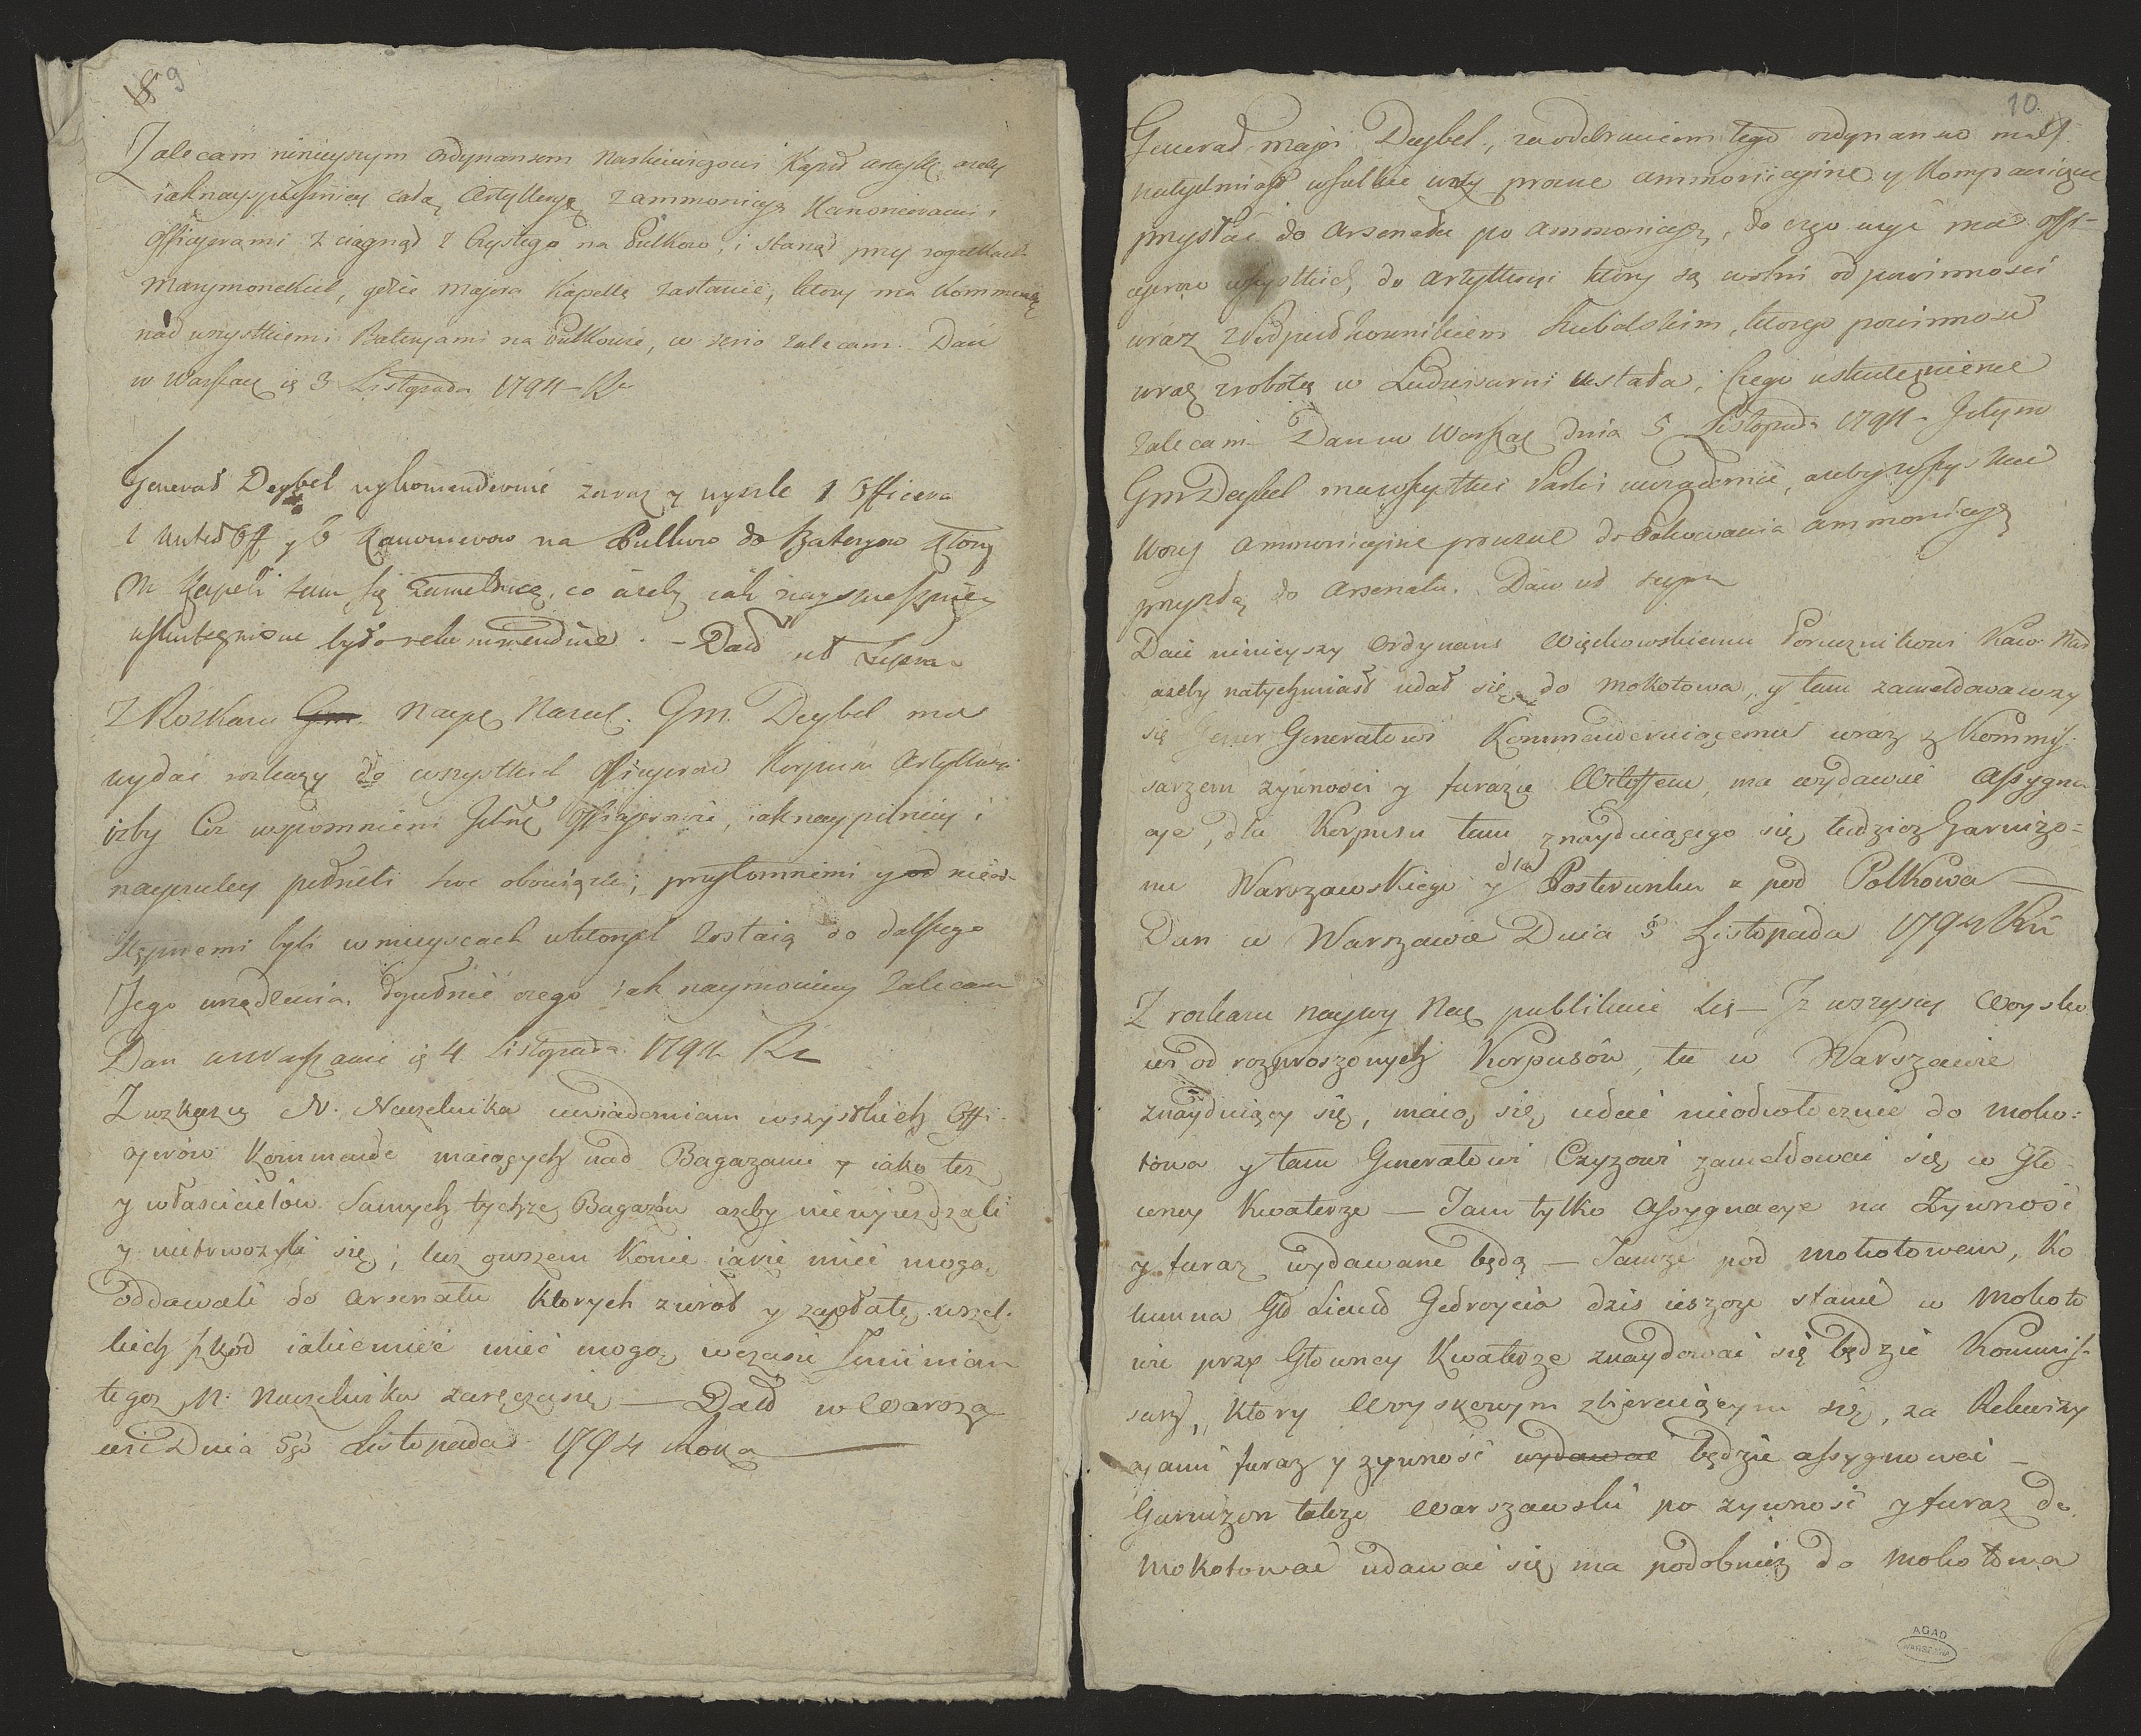 8 9
Zalecam ninieyszym Ordynansem Kapit azeby
iaknayspieszniey całą Artylleryę z ammonicyą Kanonierami i
Officyerami z ciągnąd z Czystego na Pulkow, i stanąd przy rogatkach
Marymonckich, gdzie Majora Kapellę zastanie, ktory ma Kommendę
nad wszystkiemi Bateryami na Pulkowie, co serio zalecam. Dan
w Warszawie 3 Listopada 1794 Ru
Generał Deybel wykomenderuie zaraz y wyszle 1 Officera
1 Untet Off y 6 Kanonierow na Pulkow do Bateryow Ktorzy
M Kapeli tam się zameldują, co azeby iak nayspieszniey
uskutecznione było rekommenduie. – Datt ut Supra
Z Rozkazu Gm. Nayż Naczel. Gm. Deybel ma
wydać rozkazy do wszystkich Officyerow Korpusu Artylleryi
izby Ciż wspomnieni Officyerowie, iaknaypilniey i
pełnili swe obowiązki, przytomnemi y od nieod-
stępnemi byli w mieyscach w ktorych zostaią do dalszego
Jego urządzenia, dopełnić czego iak naymocniey zalecam
Dan w Warszawie 4 Listopada 1794 Ru
Z rozkazu N. Naczelnika uwiadomiam wszystkich Offi-
cyerów Kommendę maiących nad Bagazami y iako tez
y właścicielów Samych tychże Bagazów azeby niewyiezdzali
y nietrwozyli się, lecz owszem Konie iakie mieć mogą,
oddawali do Arsenału Ktorych zwrot y zapłatę wszel-
kich szkód iakiemieć mieć mogą, wczasie Imieniem
tegoz N. Naczelnika zaręcza się — Datt w Warsza
wie Dnia 5go Listopada 1794 Roku
10.
Generał major Deybel, za odebraniem tego ordynansu ma
natychmiast wszelkie wozy prozne ammonicyine y Kompaniczne
przysłać do Arsenału po ammonicyą, do czego uzyć ma Offi-
cyerow wszystkich, do Artylleryi ktorzy są wolni od powinności
wraz z Podpułkownikiem, ktorego powinność
wraz z robotą w Ludwisarni ustała, Czego uskutecznienie
zalecam – Dan w Warszaw dnia 5 Listopada 1794 –
Gm Deybel ma wszystkie Parki uwiadomić, azeby wszystkie
wozy Ammonicyine prozne do Pakowania ammonicyi
przyszłą do Arsenału. Dan ut supra
Daię ninieyszy Ordynans Więckowskiemu Porucznikowi Kaw. Nar
azeby natychmiast udał się do Mokotowa, y tam zameldowawszy
się Generałowi Kommenderuiącemu wraz z Kommis-
sarzem zywności y furazu, ma wydawać Assygna
cye, dla Korpusu tam znayduiącego się tudziez Garnizo=
nu Warszawskiego y dla Posterunku pod Polkowa
Dan w Warszawie Dnia 5 Listopada 1794 Ru
Z rozkazu naywy Nacz publikuie się – Iz wszyscy Woysko
wi od rozproszonych Korpusów, tu w Warszawie
znayduiący się, maią się udać nieodwłocznie do Moko=
towa y tam Generałowi Czyzowi zameldować się w Głó-
wney Kwaterze — Tam tylko Assygnacye na Zywność
y furaz wydawane będą — Tamże pod Mokotowem, Ko
lumna Gł Lieutt Giedroycia dzis ieszcze stanie w Mokoto
wie przy Głowney Kwaterze znaydować się będzie Kommis-
sarz, Który Woyskowym zbieraiącym się, za Rekwizy
cyami furaz y zywność wydawać będzie assygnować —
Garnizon takze Warszawski po zywność y furaz do
Mokotowaé udawać się ma podobniez do Mokotowa
AGAD
WARSZAWA